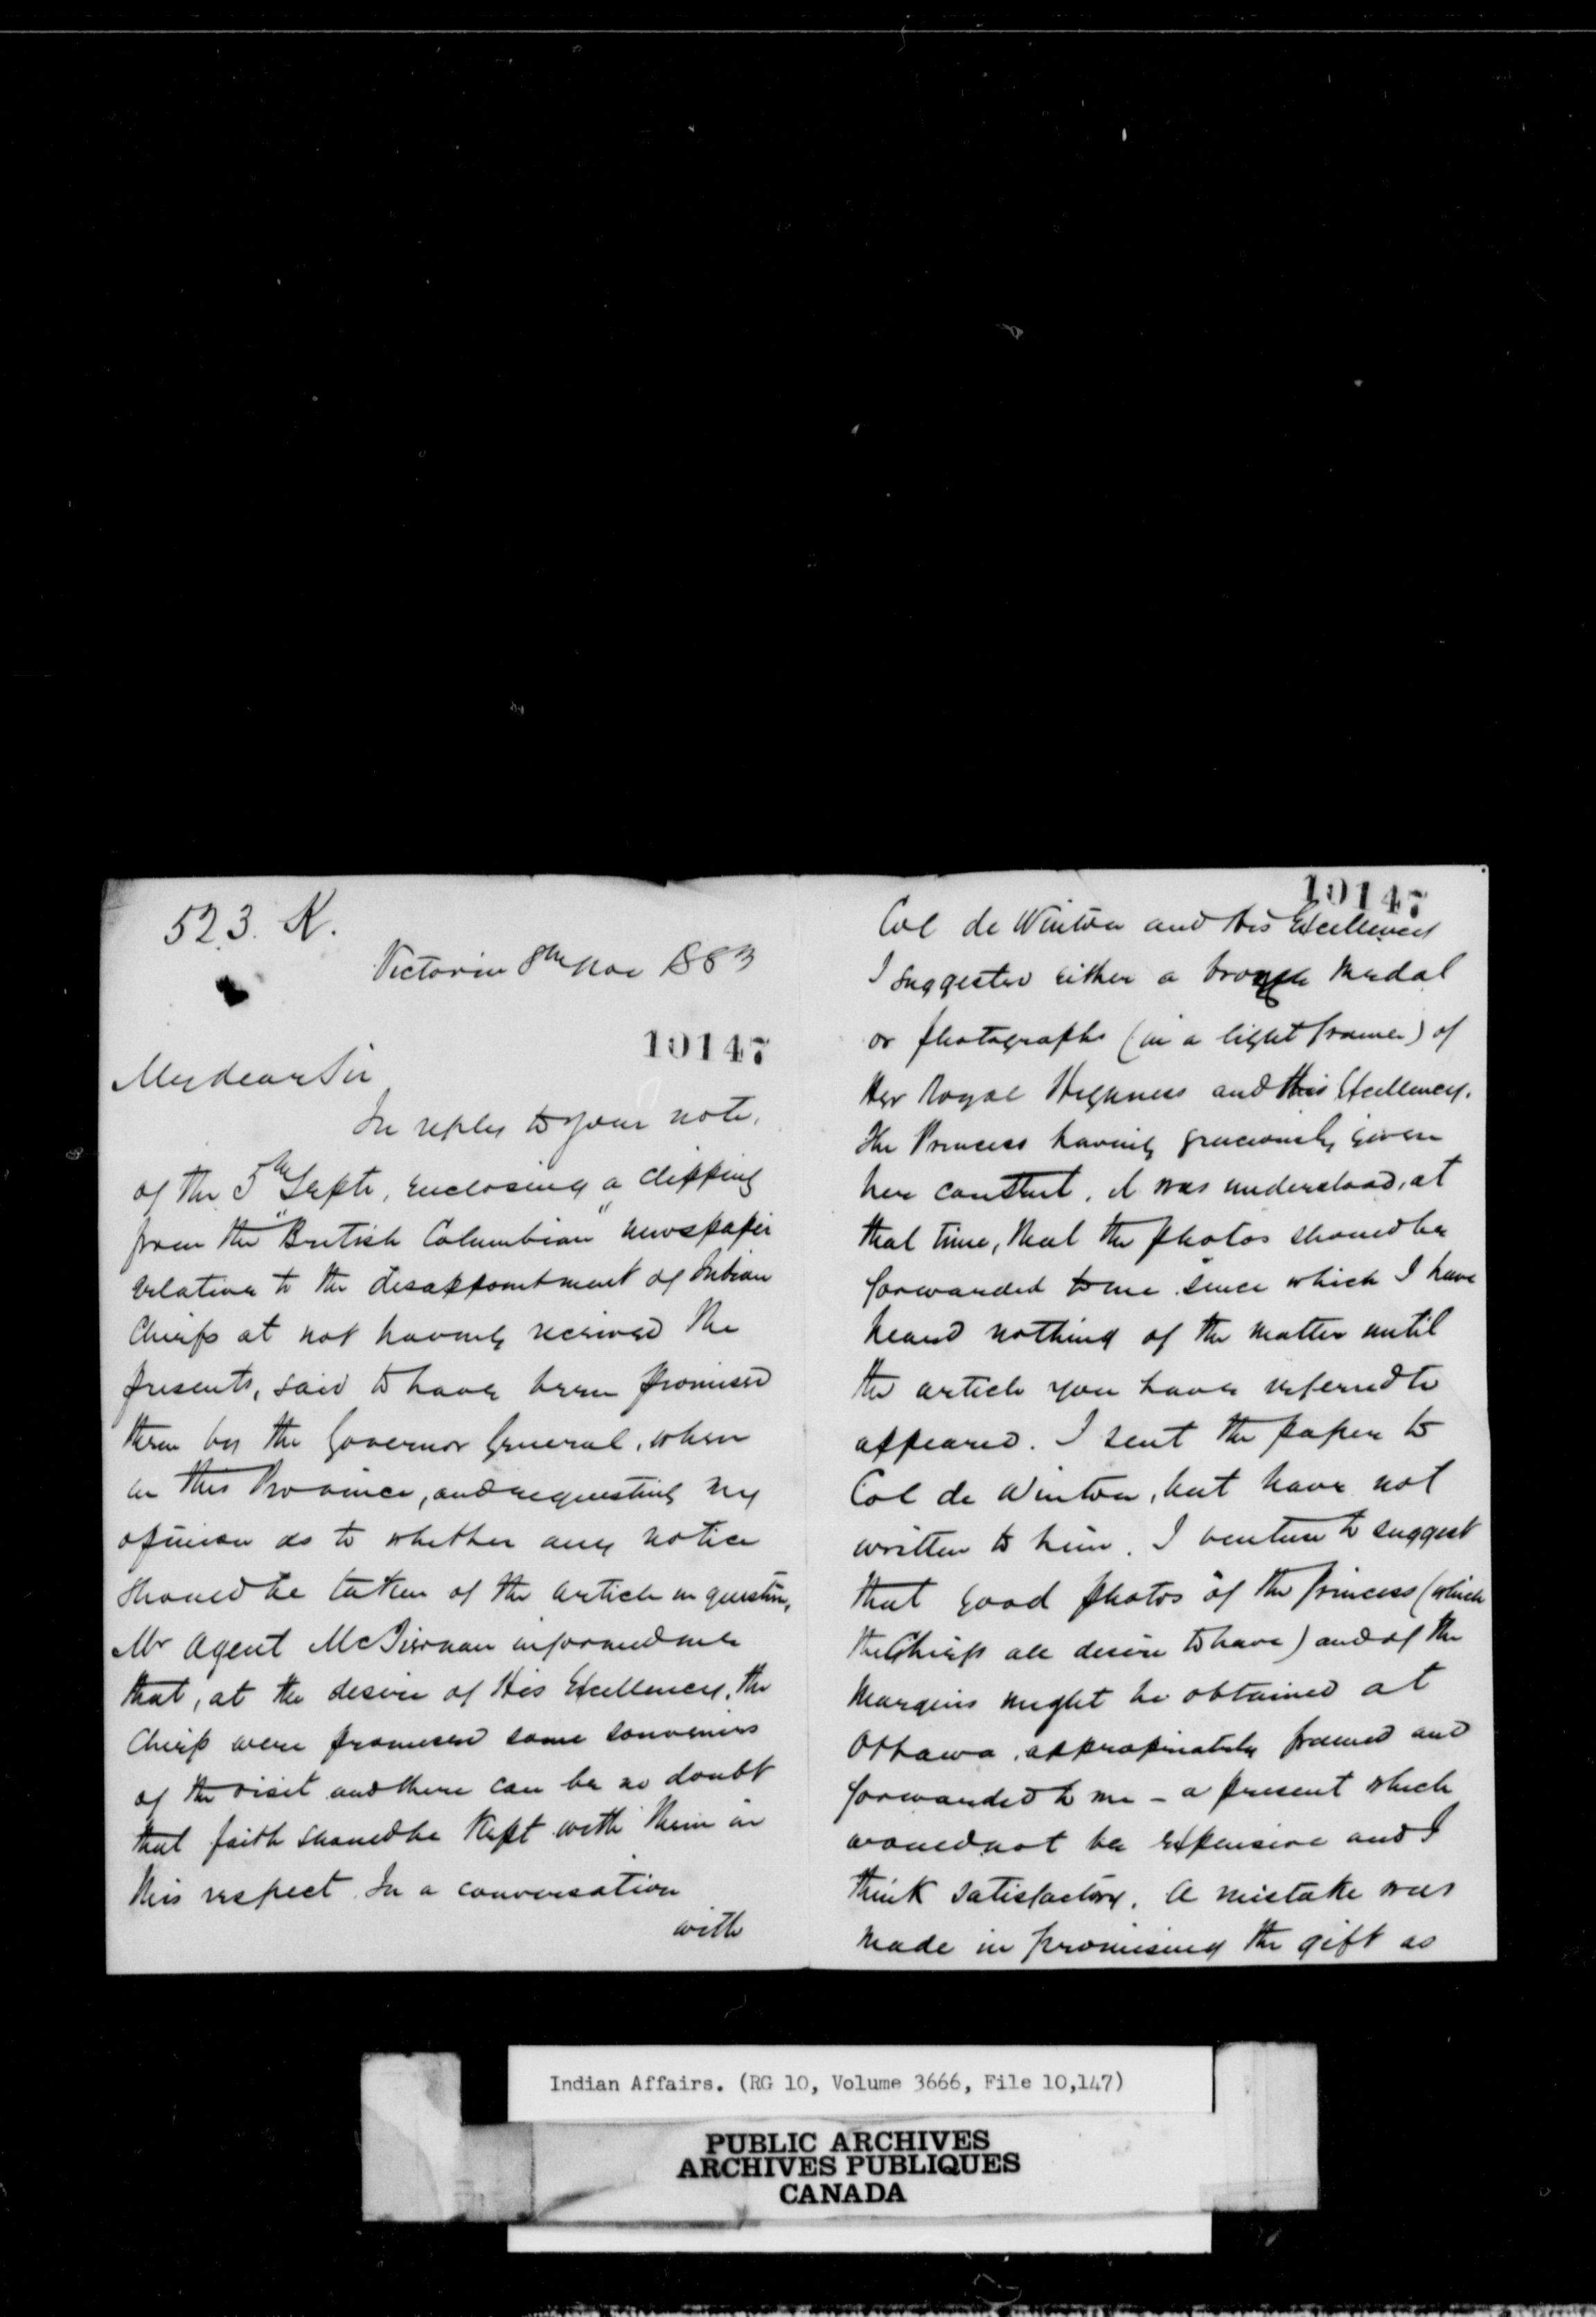 523. K.
Victoria 8th Nov 1883
10147
My dear Sir
In reply to your note
of the 5th Septr, enclosing a clipping
from the "British Columbian" newspaper
relative to the disappointment of Indian
Chiefs at not having received the
presents, said to have been promised
them by the Governor General, when
in this Province, and requesting my
opinion as to whether any notice
should be taken of the article in question,
Mr Agent McTiernan informed me
that, at the desire of His Excellency, the
Chiefs were promised some souvenirs
of the visit and there can be no doubt
that faith should be kept with them in
this respect. In a conversation
with
10147
Col de Winton and His Excellency
I suggested either a bronze medal
or photographs (in a light frame) of
Her Royal Highness and His Excellency.
The Princess having graciously given
her consent, it was understood, at
that time, that the photos should be
forwarded to me since which I have
heard nothing of the matter until
the article you have referred to
appeared. I sent the paper to
Col de Winton, but have not
written to him. I venture to suggest
that good photos of the Princess (which
the Chiefs all desire to have) and of the
Marquis might be obtained at
Ottawa, appropriately framed and
forwarded to me - a present which
would not be expensive and I
think satisfactory. A mistake was
made in promising the gift as
Indian Affairs. (RG 10, Volume 3666, File 10,147)
PUBLIC ARCHIVES
ARCHIVES PUBLIQUES
CANADA